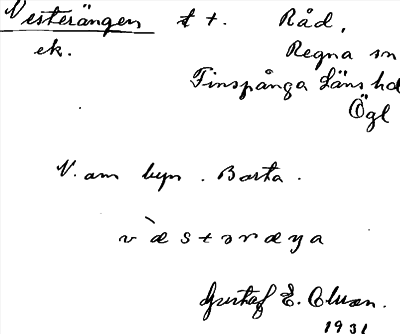 Vesterängen t t. Råd,
ek. Regna sn
Finspånga läns hd
Ögl
V. om byn. Borta.
væstəræŋa
Gustaf E. Olsson.
1931